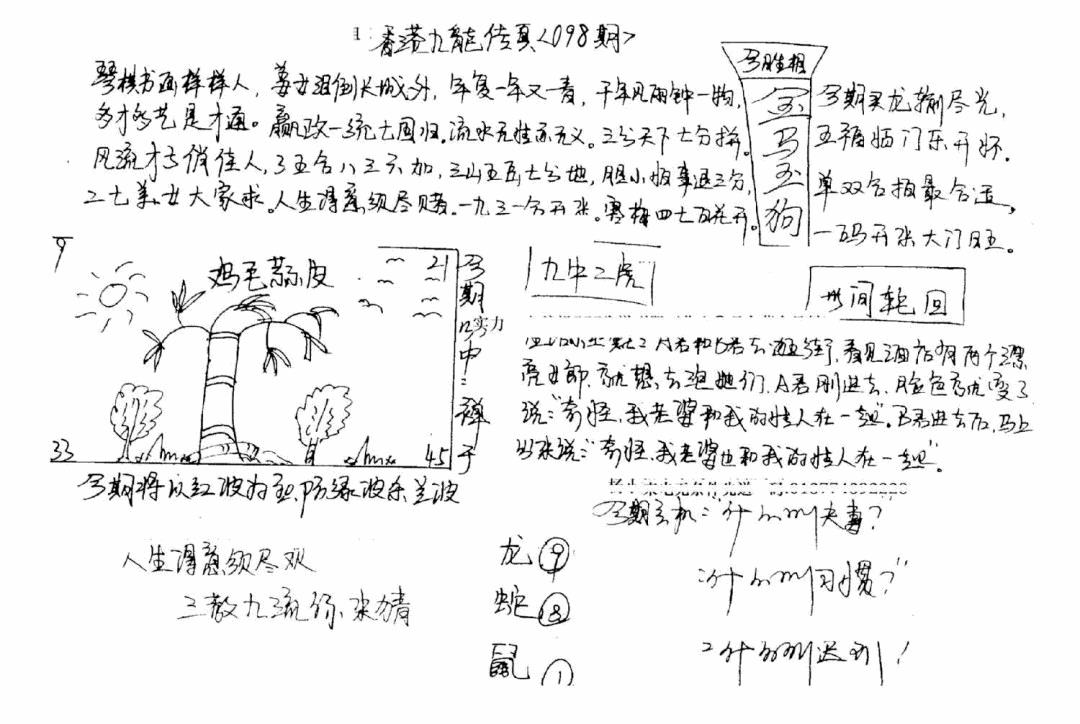 香港九龍传真<098期>
琴棋书画样样人，姜女泪倒长城外，年复一年又一春，千年风雨钟一物，
多才多艺是才通。嬴政一统七国归。流水无性亦无义。三分天下七分拼。
风流才子俏佳人，3五合八三六加，三山五岳七分地，胆小怕事退三分，
二七美女大家求。人生得意须尽赌。一九三一合开张。寒梅四七百花开。
今期生相
金马玉狗
今期买龙输尽光，
五福临门乐开怀。
单双合拍最合适，
一码开张大门旺。
9
21
鸡毛蒜皮
33
45
今期
实力
中：禅子
九牛二虎
世间轮回
A君和B君去逛街，看见酒店有两个漂
亮女郎，就想去泡她们，A君刚进去，脸色就变了
说："奇怪，我老婆和我的情人在一起"。B君进去后，马上
出来说："奇怪，我老婆也和我的情人在一起"。
今期将以红波为主，防绿波杀兰波
今期玄机：什么叫夫妻？
：什么叫习惯？"
：什么叫迟到！
人生得意须尽欢
三教九流
龙 ⑨
蛇 ⑧
鼠 ①